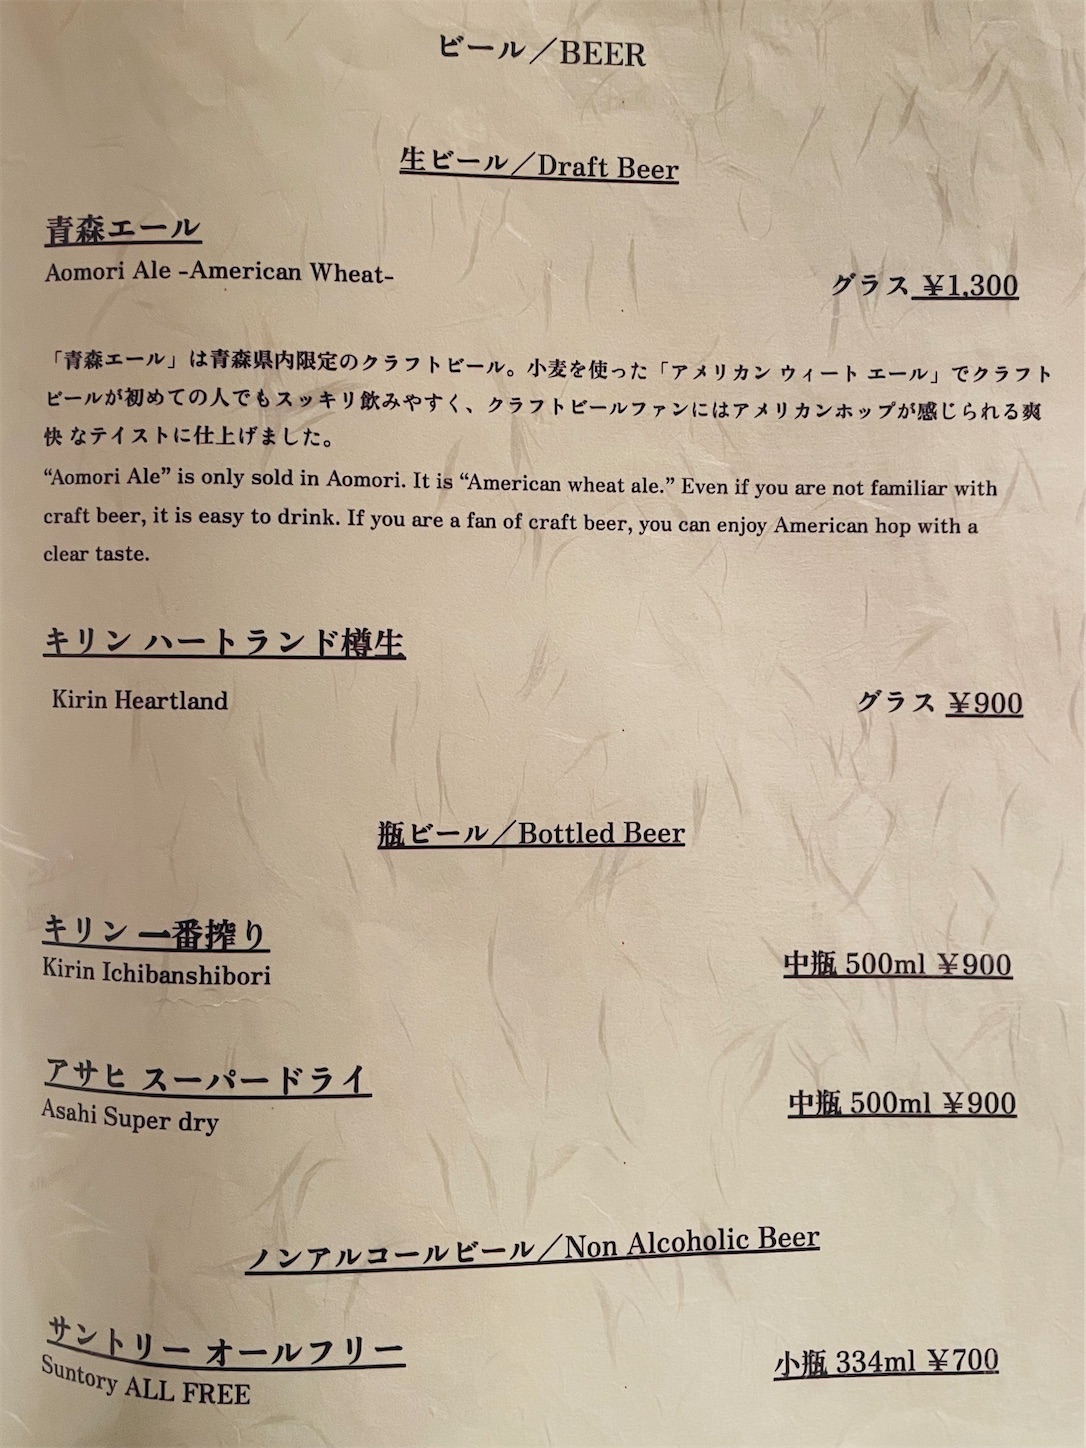 ビール／BEER
生ビール／Draft Beer
青森エール
Aomori Ale -American Wheat-
グラス ￥1,300
「青森エール」は青森県内限定のクラフトビール。小麦を使った「アメリカン ウィート エール」でクラフト
ビールが初めての人でもスッキリ飲みやすく、クラフトビールファンにはアメリカンホップが感じられる爽
快 なテイストに仕上げました。
“Aomori Ale” is only sold in Aomori. It is “American wheat ale.” Even if you are not familiar with
craft beer, it is easy to drink. If you are a fan of craft beer, you can enjoy American hop with a
clear taste.
キリン ハートランド樽生
Kirin Heartland
グラス ￥900
瓶ビール／Bottled Beer
キリン 一番搾り
Kirin Ichibanshibori
中瓶 500ml ￥900
アサヒ スーパードライ
Asahi Super dry
中瓶 500ml ￥900
ノンアルコールビール／Non Alcoholic Beer
サントリー オールフリー
Suntory ALL FREE
小瓶 334ml ￥700